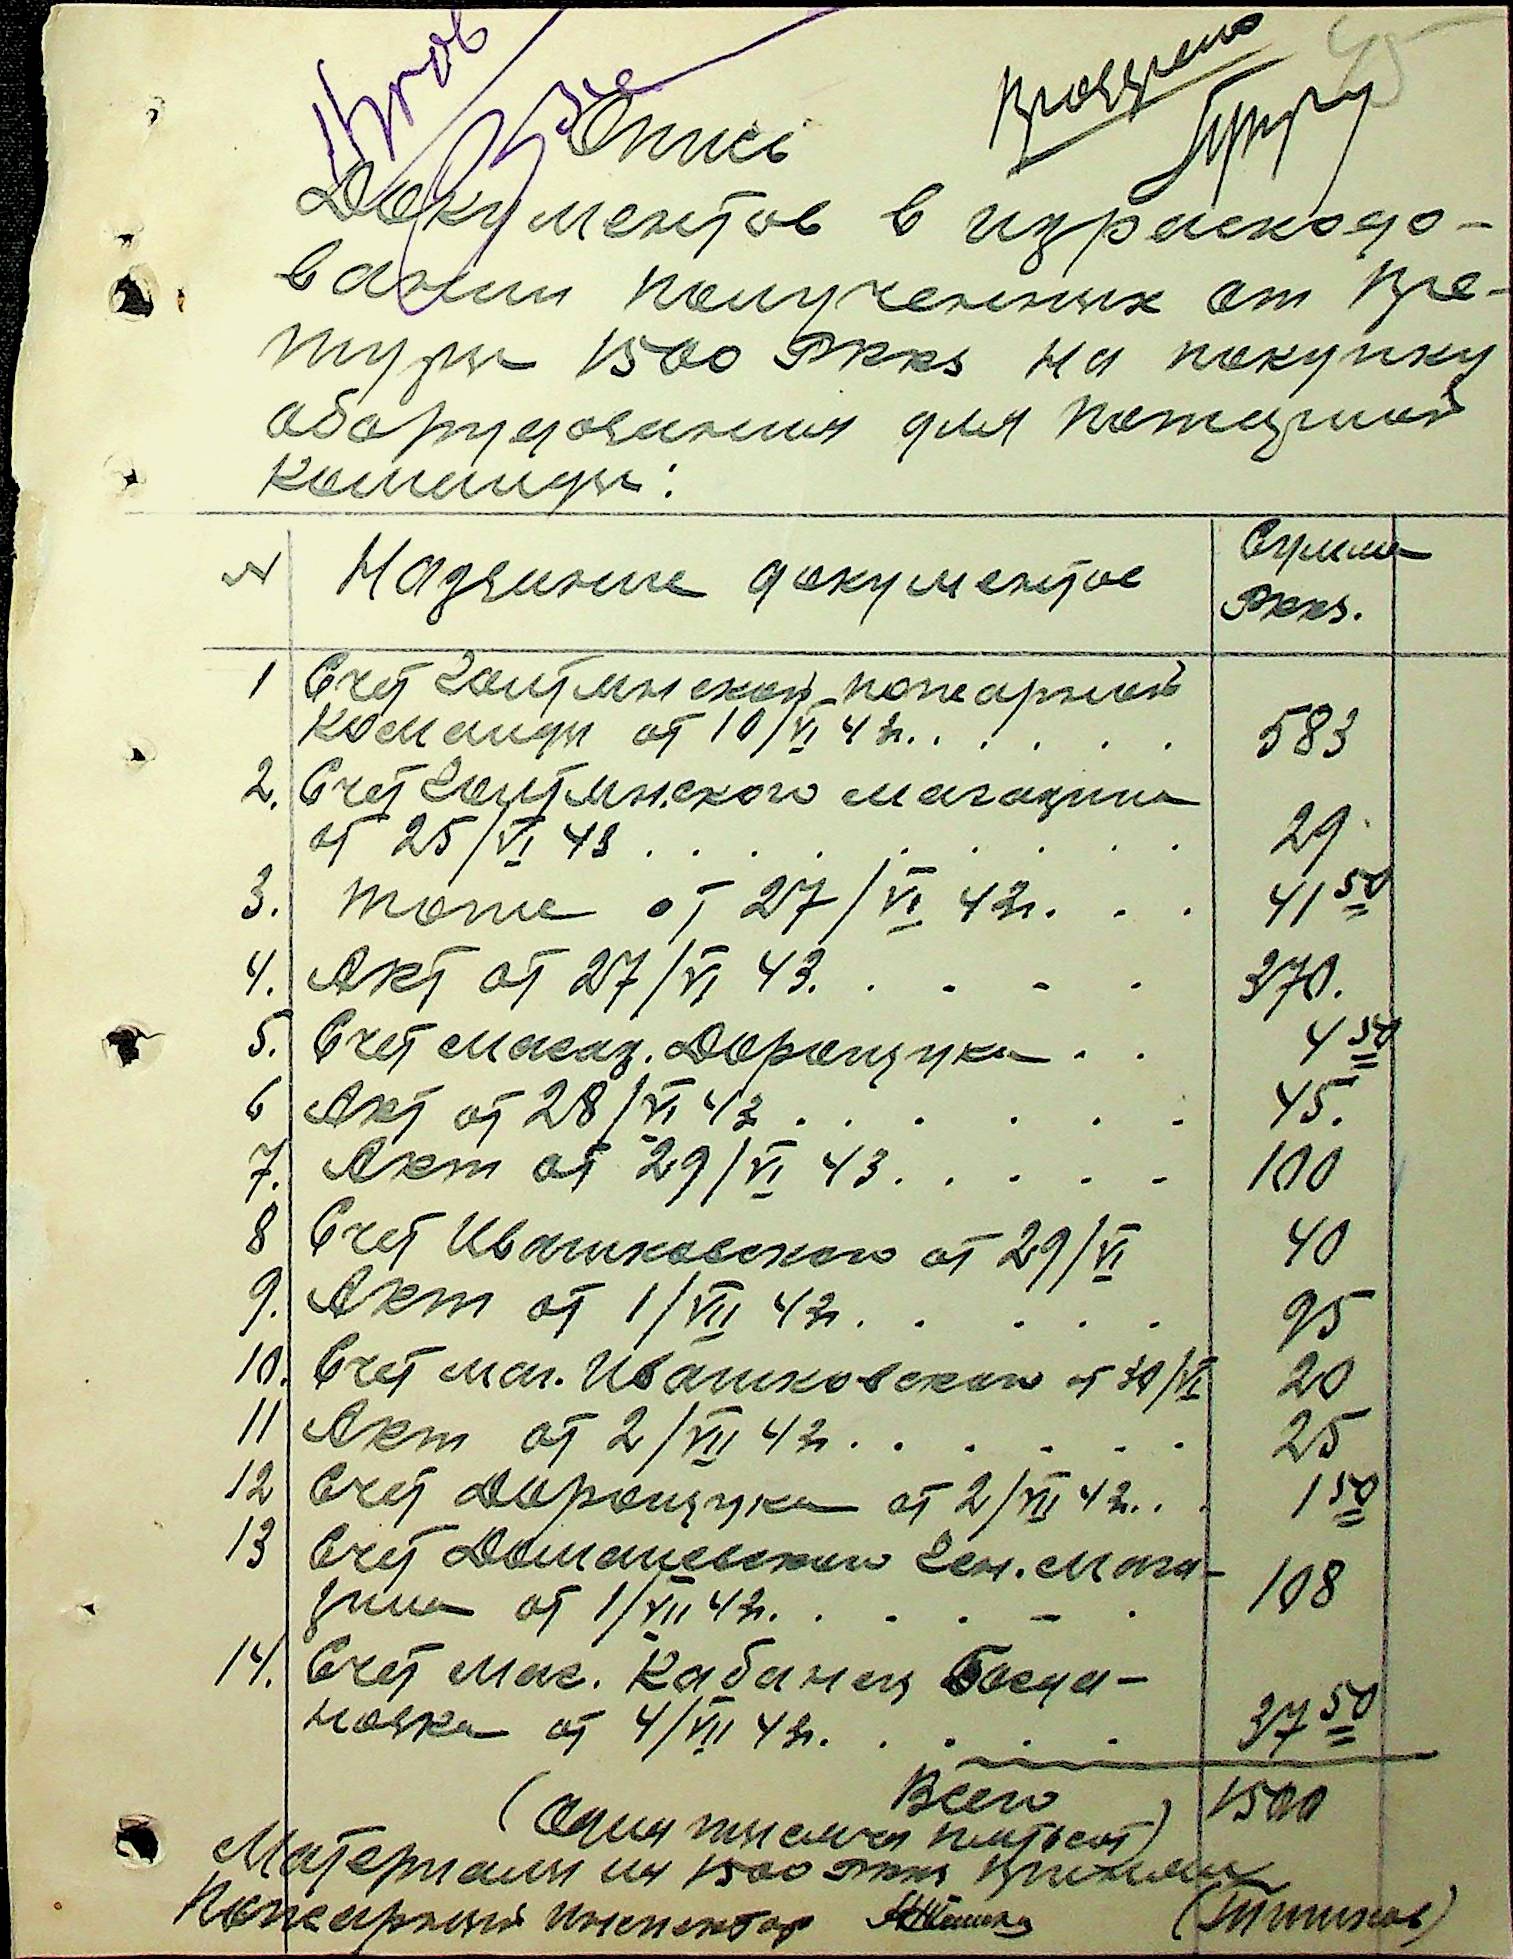 45
Проверено
Опись
Документов в израсходо-
вании полученных от Пре-
туры 1500 РККs на покупку
оборудования для пожарной
команды:
№ Название документов Сумма
РККs.
1 Счет Голтянской пожарной
команды от 10/VI 43г. . . . . . 583
2. Счет Голтянского магазина
от 25/VI 43 . . . . . . . . . 29
3. Тоже от 27/VI 43г. . . 41 50
4. Акт от 27/VI 43. . . . . 370.
5. Счет магаз. Доронщука . . 4 50
6 Акт от 28/VI 43 . . . . . . 45.
7. Акт от 29/VI 43. . . . . 100
8 Счет Ивашковского от 29/VI 40
9. Акт от 1/VII 43г. . . . . . 95
10. Счет маг. Ивашковского от 30/VI 20
11 Акт от 2/VII 43г. . . . . . 25
12 Счет Доронщука от 2/VII 43г. . . 1 50
13 Счет Домашевского Ген. мага-
зина от 1/VII 43г. . . . . - . 108
14. Счет маг. Кабанец Богда-
новка от 4/VII 43г. . . . . . 37 50
Всего 1500
(одна тысяча пятьсот)
Материалы на 1500 РККs принял
Пожарный инспектор (Тишков)